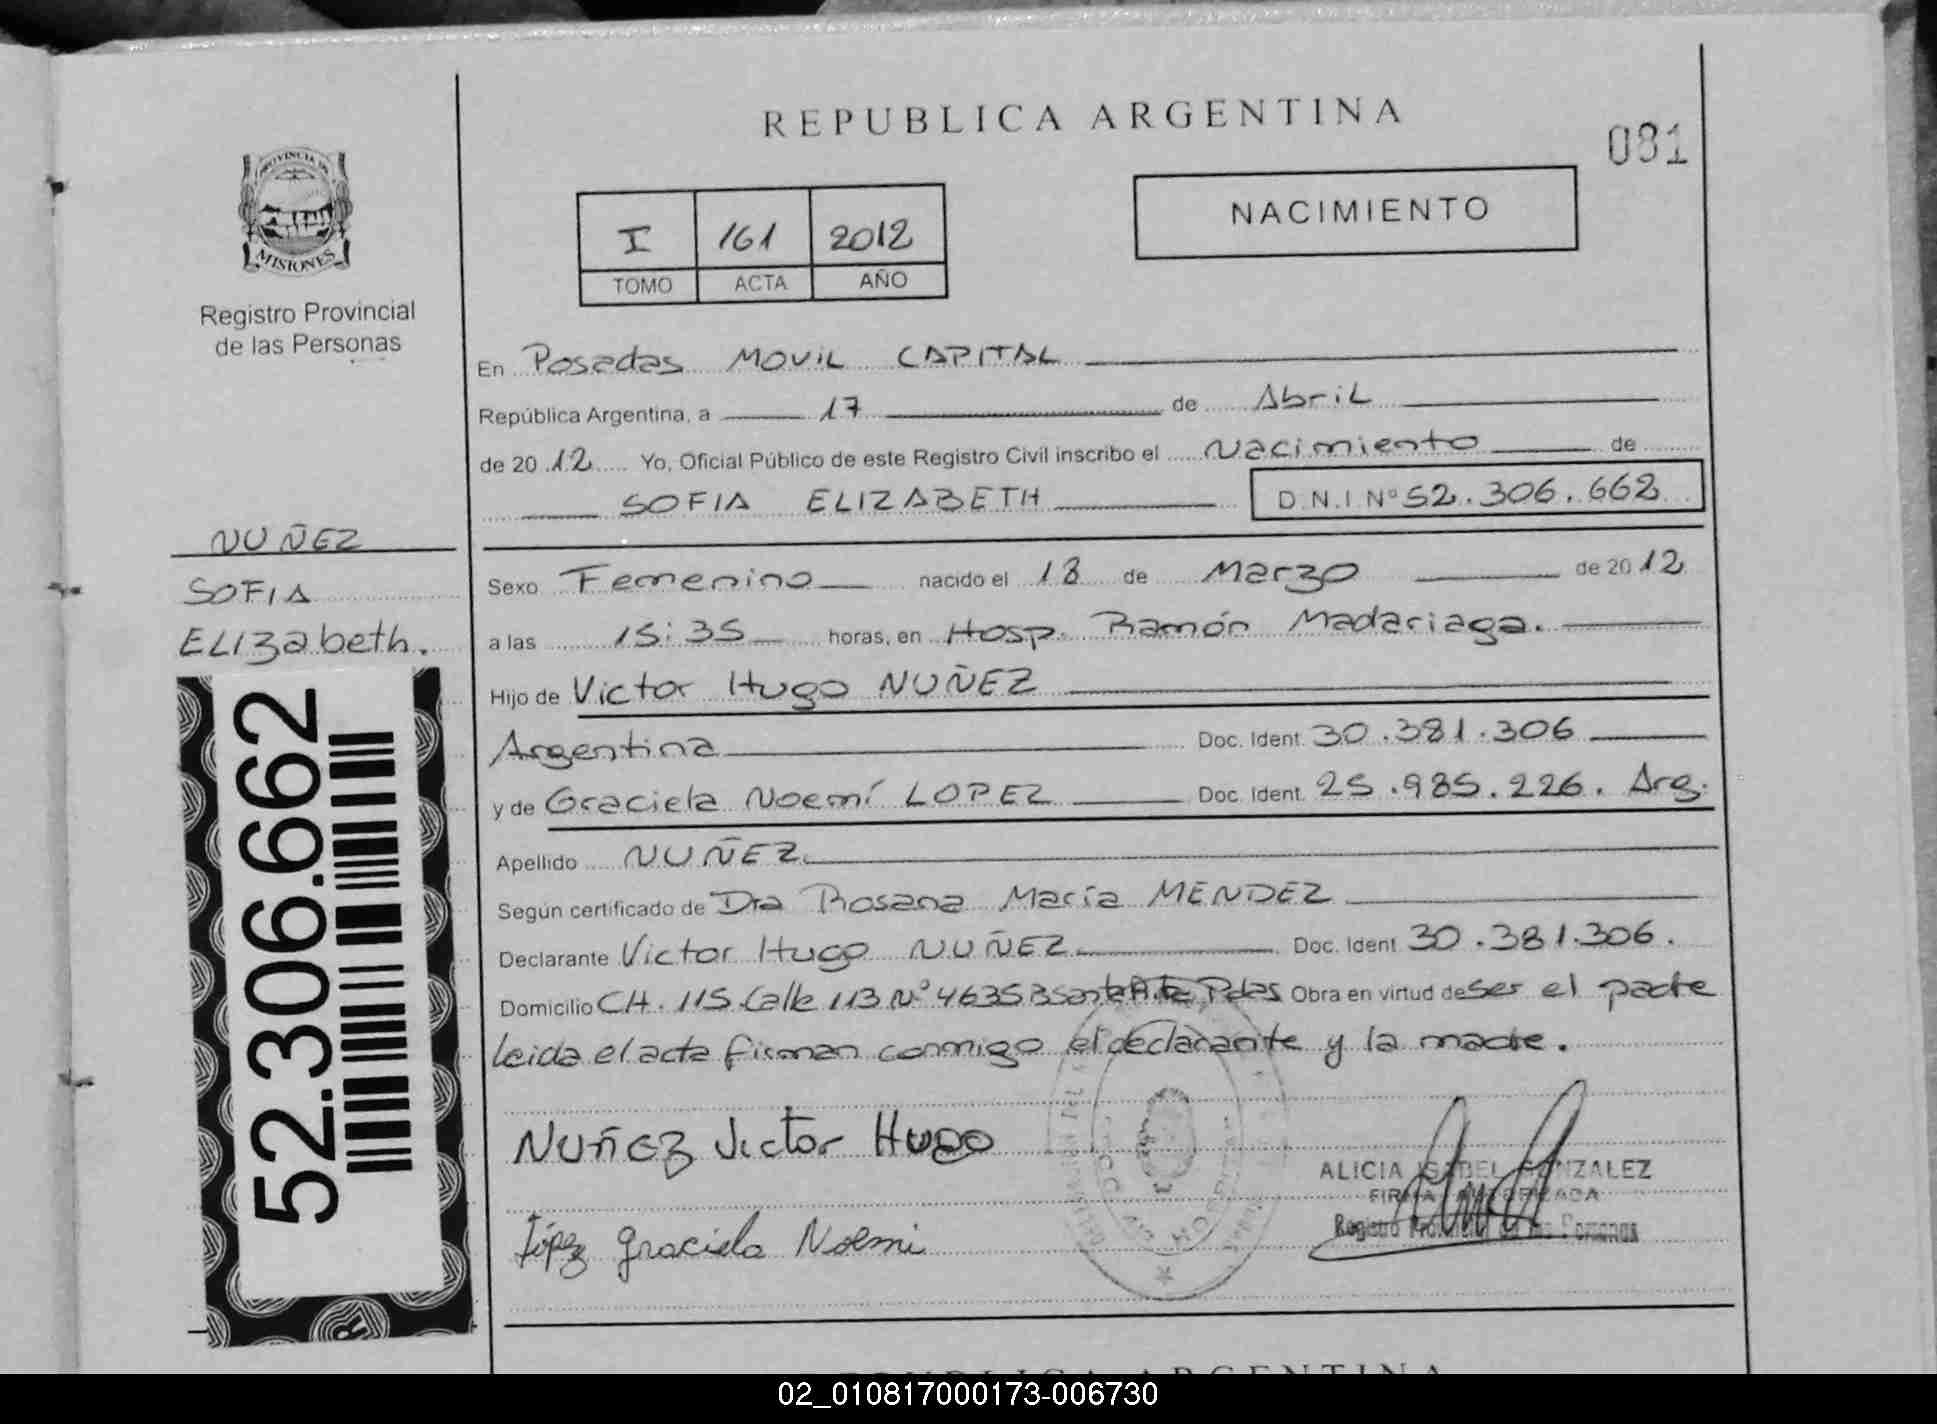 REPUBLICA ARGENTINA
081
PROVINCIA DE
MISIONES
Registro Provincial
de las Personas
I 161 2012
TOMO ACTA AÑO
NACIMIENTO
En Posadas MOVIL CAPITAL
República Argentina, a 17 de Abril
de 2012 Yo, Oficial Público de este Registro Civil inscribo el Nacimiento de
SOFIA ELIZABETH D.N.I. Nº 52.306.662
NUÑEZ
SOFIA
ELIZabeth.
52.306.662
Sexo Femenino nacido el 18 de Marzo de 2012
a las 15:35 horas, en Hosp. Ramón Madariaga.
Hijo de Victor Hugo NUÑEZ
Argentina Doc. Ident. 30.381.306
y de Graciela Noemí LOPEZ Doc. Ident. 25.985.226. Arg.
Apellido NUÑEZ
Según certificado de Dra Rosana María MENDEZ
Declarante Victor Hugo NUÑEZ Doc. Ident. 30.381.306.
Domicilio CH. 115 Calle 113 Nº 4635 Obra en virtud de ser el padre
leida el acta firman conmigo el declarante y la madre.
NUÑEZ Victor HUGO
López Graciela Noemi
ALICIA ISABEL GONZALEZ
FIRMA AUTORIZADA
Registro Provincial de las Personas
REPUBLICA ARGENTINA
02_010817000173-006730